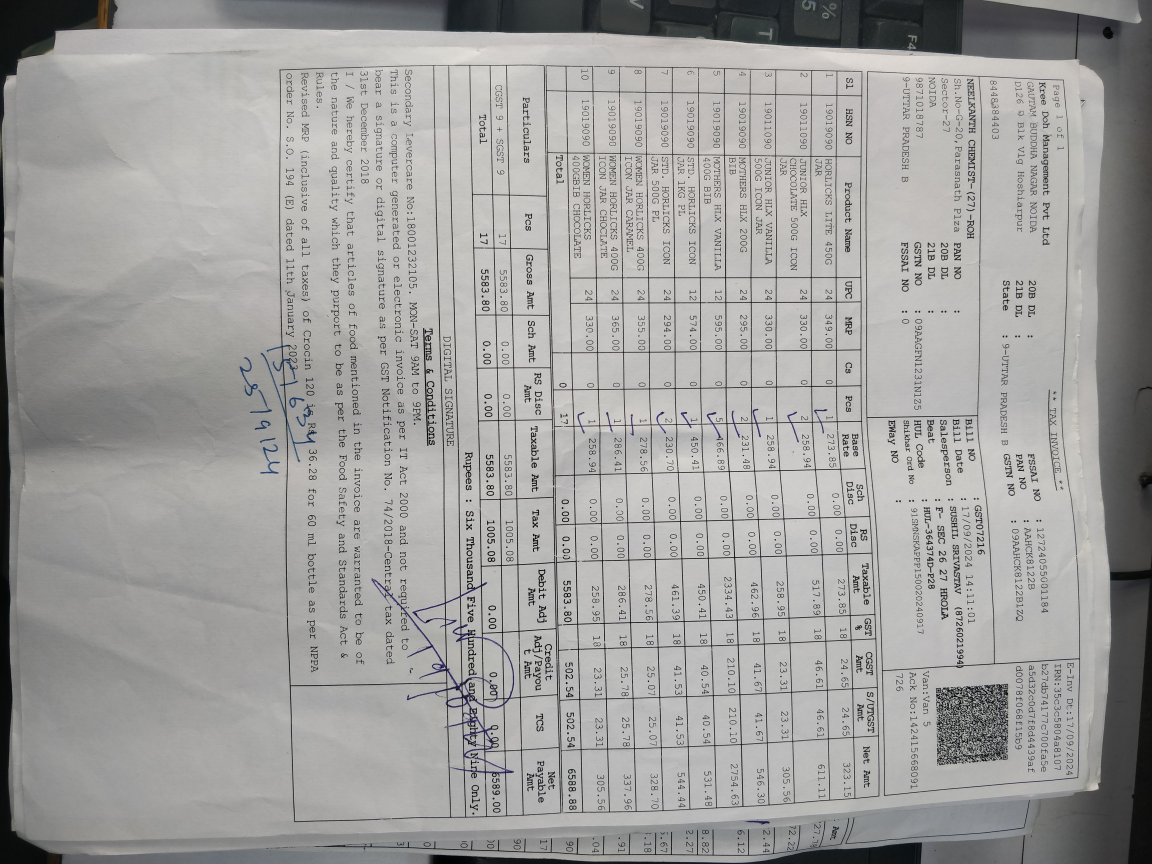 Page 1 of 1
** TAX INVOICE **
Kree Doh Management Pvt Ltd
GAUTAM BUDDHA NAGAR NOIDA
D126 @ Blk Vlg Hoshiarpor
8448384403
20B DL :
21B DL :
State : 9-UTTAR PRADESH B
FSSAI NO : 12724055001184
PAN NO : AAHCK8122B
GSTN NO : 09AAHCK8122B1ZQ
E-Inv Dt:17/09/2024
IRN:35c3c5804a8107
b27db74177c700fa5e
a5d32c0d7f8d4439af
d0078f068f15b9
NEELKANTH CHEMIST-(27)-ROH
Sh.No-G-20,Parasnath Plza
Sector-27
NOIDA
9871018787
9-UTTAR PRADESH B
PAN NO :
20B DL :
21B DL :
GSTN NO : 09AAGFN1231N1Z5
FSSAI NO : 0
Bill NO : GST07216
Bill Date : 17/09/2024 14:11:01
Salesperson : SUSHIL SRIVASTAV (8726021994)
Beat : F- SEC 26 27 HROLA
HUL Code : HUL-364374D-P28
Shikhar Ord No : 91SMNSKAPPP150020240917
EWay NO :
Van:Van 5
Ack No:142415668091
726
Sl HSN NO Product Name UPC MRP Cs Pcs Base Rate Sch Disc RS Disc Taxable Amt GST % CGST Amt S/UTGST Amt Net Amt
1 19019090 HORLICKS LITE 450G JAR 24 349.00 0 1 273.85 0.00 0.00 273.85 18 24.65 24.65 323.15
2 19011090 JUNIOR HLX CHOCOLATE 500G ICON JAR 24 330.00 0 2 258.94 0.00 0.00 517.89 18 46.61 46.61 611.11
3 19011090 JUNIOR HLX VANILLA 500G ICON JAR 24 330.00 0 1 258.94 0.00 0.00 258.95 18 23.31 23.31 305.56
4 19019090 MOTHERS HLX 200G BIB 24 295.00 0 2 231.48 0.00 0.00 462.96 18 41.67 41.67 546.30
5 19019090 MOTHERS HLX VANILLA 400G BIB 12 595.00 0 5 466.89 0.00 0.00 2334.43 18 210.10 210.10 2754.63
6 19019090 STD. HORLICKS ICON JAR 1KG PL 12 574.00 0 1 450.41 0.00 0.00 450.41 18 40.54 40.54 531.48
7 19019090 STD. HORLICKS ICON JAR 500G PL 24 294.00 0 2 230.70 0.00 0.00 461.39 18 41.53 41.53 544.44
8 19019090 WOMEN HORLICKS 400G ICON JAR CARAMEL 24 355.00 0 1 278.56 0.00 0.00 278.56 18 25.07 25.07 328.70
9 19019090 WOMEN HORLICKS 400G ICON JAR CHOCLATE 24 365.00 0 1 286.41 0.00 0.00 286.41 18 25.78 25.78 337.96
10 19019090 WOMEN HORLICKS 400GBIB CHOCOLATE 24 330.00 0 1 258.94 0.00 0.00 258.95 18 23.31 23.31 305.56
Total 0 17 0.00 0.00 5583.80 502.54 502.54 6588.88
Particulars Pcs Gross Amt Sch Amt RS Disc Amt Taxable Amt Tax Amt Debit Adj Amt Credit Adj/Payou t Amt TCS Net Payable Amt
CGST 9 + SGST 9 17 5583.80 0.00 0.00 5583.80 1005.08
Total 17 5583.80 0.00 0.00 5583.80 1005.08 0.00 0.00 0.00 6589.00
Rupees : Six Thousand Five Hundred and Eighty Nine Only.
DIGITAL SIGNATURE
Terms & Conditions
Secondary Levercare No:18001232105. MON-SAT 9AM to 9PM.
This is a computer generated or electronic invoice as per IT Act 2000 and not required to
bear a signature or digital signature as per GST Notification No. 74/2018-Central tax dated
31st December 2018
I / We hereby certify that articles of food mentioned in the invoice are warranted to be of
the nature and quality which they purport to be as per the Food Safety and Standards Act &
Rules.
Revised MRP (inclusive of all taxes) of Crocin 120 is Rs 36.28 for 60 ml bottle as per NPPA
order No. S.O. 194 (E) dated 11th January 2023
25/9/24